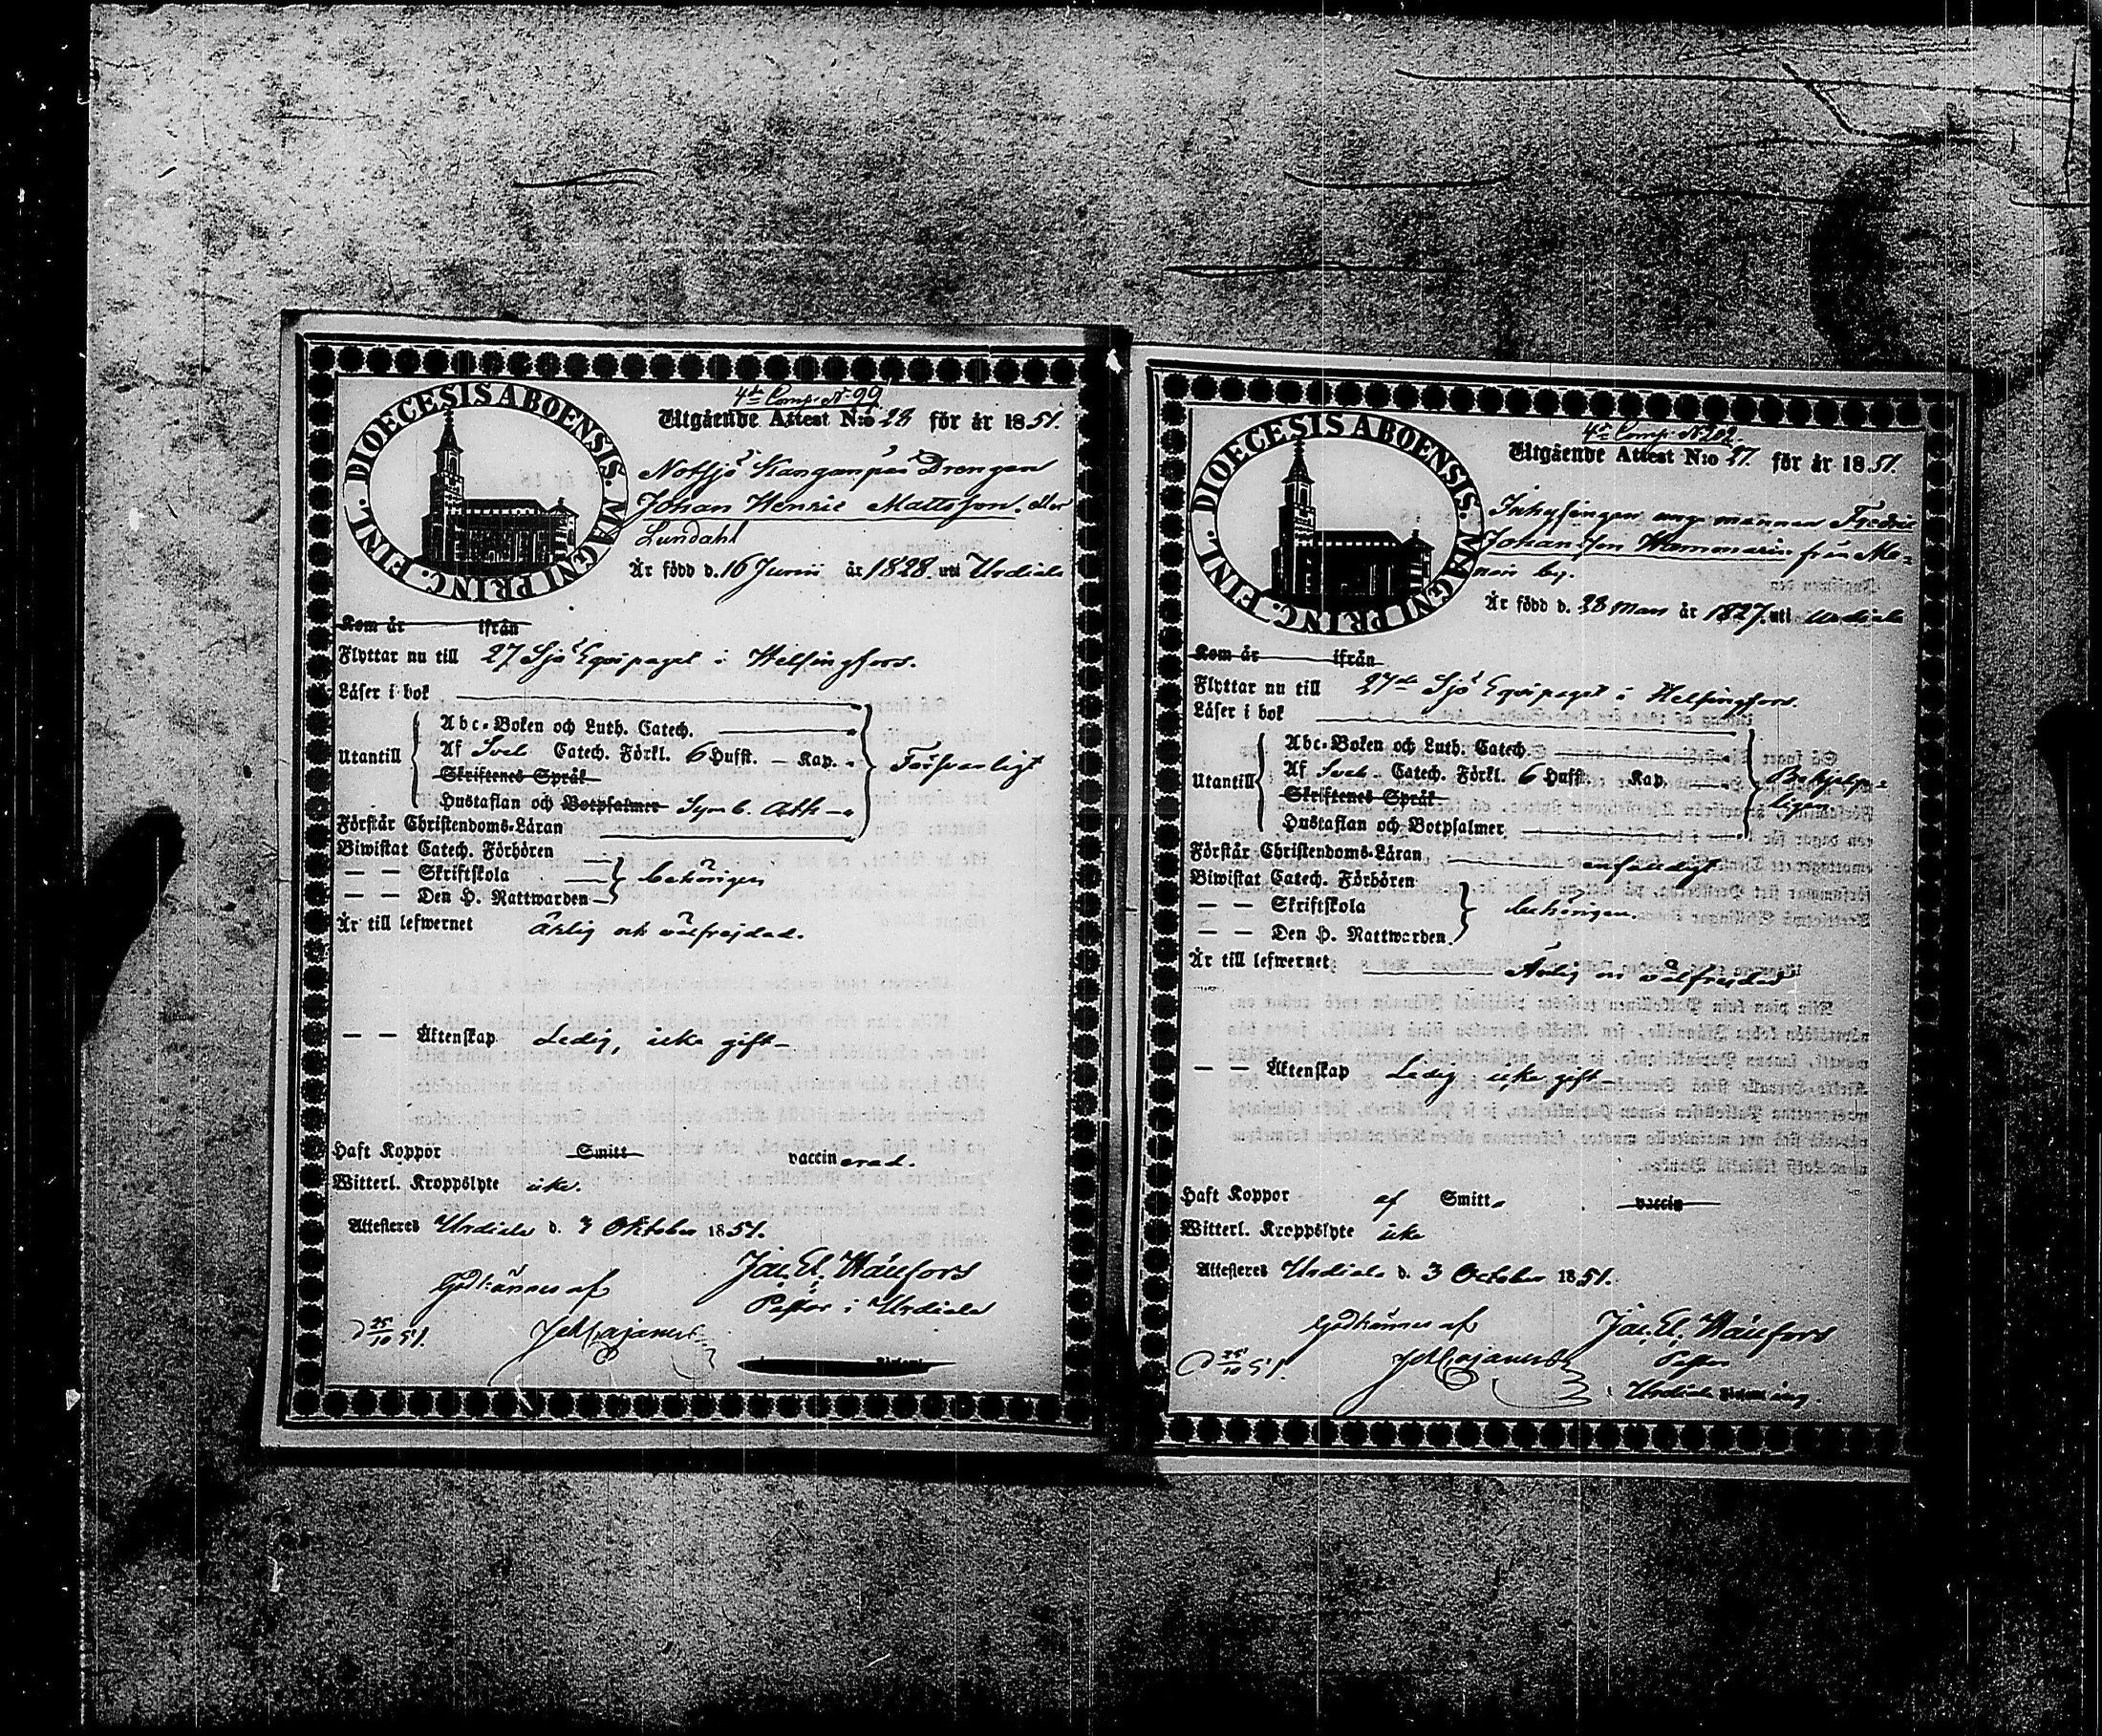 DIOECESIS ABOENSIS. MAGNI PRINC. FINL.
4de Comp. N 99
Utgående Attest N:o 28 för år 1851.
Notsjö Kanganpää Drengen
Johan Henric Mattsson. eller
Lundahl
Är född d. 16 Junii år 1828. uti Urdiala
Kom år ifrån
Flyttar nu till 27 Sjö Equipaget i Helsingfors.
Läser i bok
Abc-Boken och Luth. Catech.
Utantill Af Sveb. Catech. Förkl. 6 Hufst. Kap. Försvarligt
Skriftenes Språk
Hustaflan och Botpsalmer Symb. Ath
Förstår Christendoms-Läran
Biwistat Catech. Förhören
— — Skriftskola behörigen
— — Den H. Nattwarden
Är till lefwernet Ärlig och välfrejdad.
— — Äktenskap Ledig, icke gift
Haft Koppor Smitt vaccinerad.
Witterl. Kroppslyte icke.
Attesteres Urdiala d. 3 Oktober 1851.
Godkännes af
Pastor i Urdiala
d 25/10 51.
DIOECESIS ABOENSIS. MAGNI PRINC. FINL.
4de Comp. N 202.
Utgående Attest N:o 27. för år 1851.
Inhysingen unge mannen Fredric
Johansson Hammarin från Me-
nois by.
Är född d. 28 Mars år 1827. uti Urdiala
Kom år ifrån
Flyttar nu till 27de Sjö Equipaget i Helsingfors.
Läser i bok
Abc-Boken och Luth. Catech.
Utantill Af Sveb. Catech. Förkl. 6 Hufst. Kap. Behjelpe-
ligen
Skriftenes Språk.
Hustaflan och Botpsalmer
Förstår Christendoms-Läran enfaldigt
Biwistat Catech. Förhören
— — Skriftskola behörigen.
— — Den H. Nattwarden.
Är till lefwernet Ärlig och välfrejdad
— — Äktenskap Ledig icke gift
Haft Koppor af Smitt. vaccin
Witterl. Kroppslyte icke
Attesteres Urdiala d. 3 October 1851.
Godkännes af
Pastor
d 25/10 51.
Urdiala